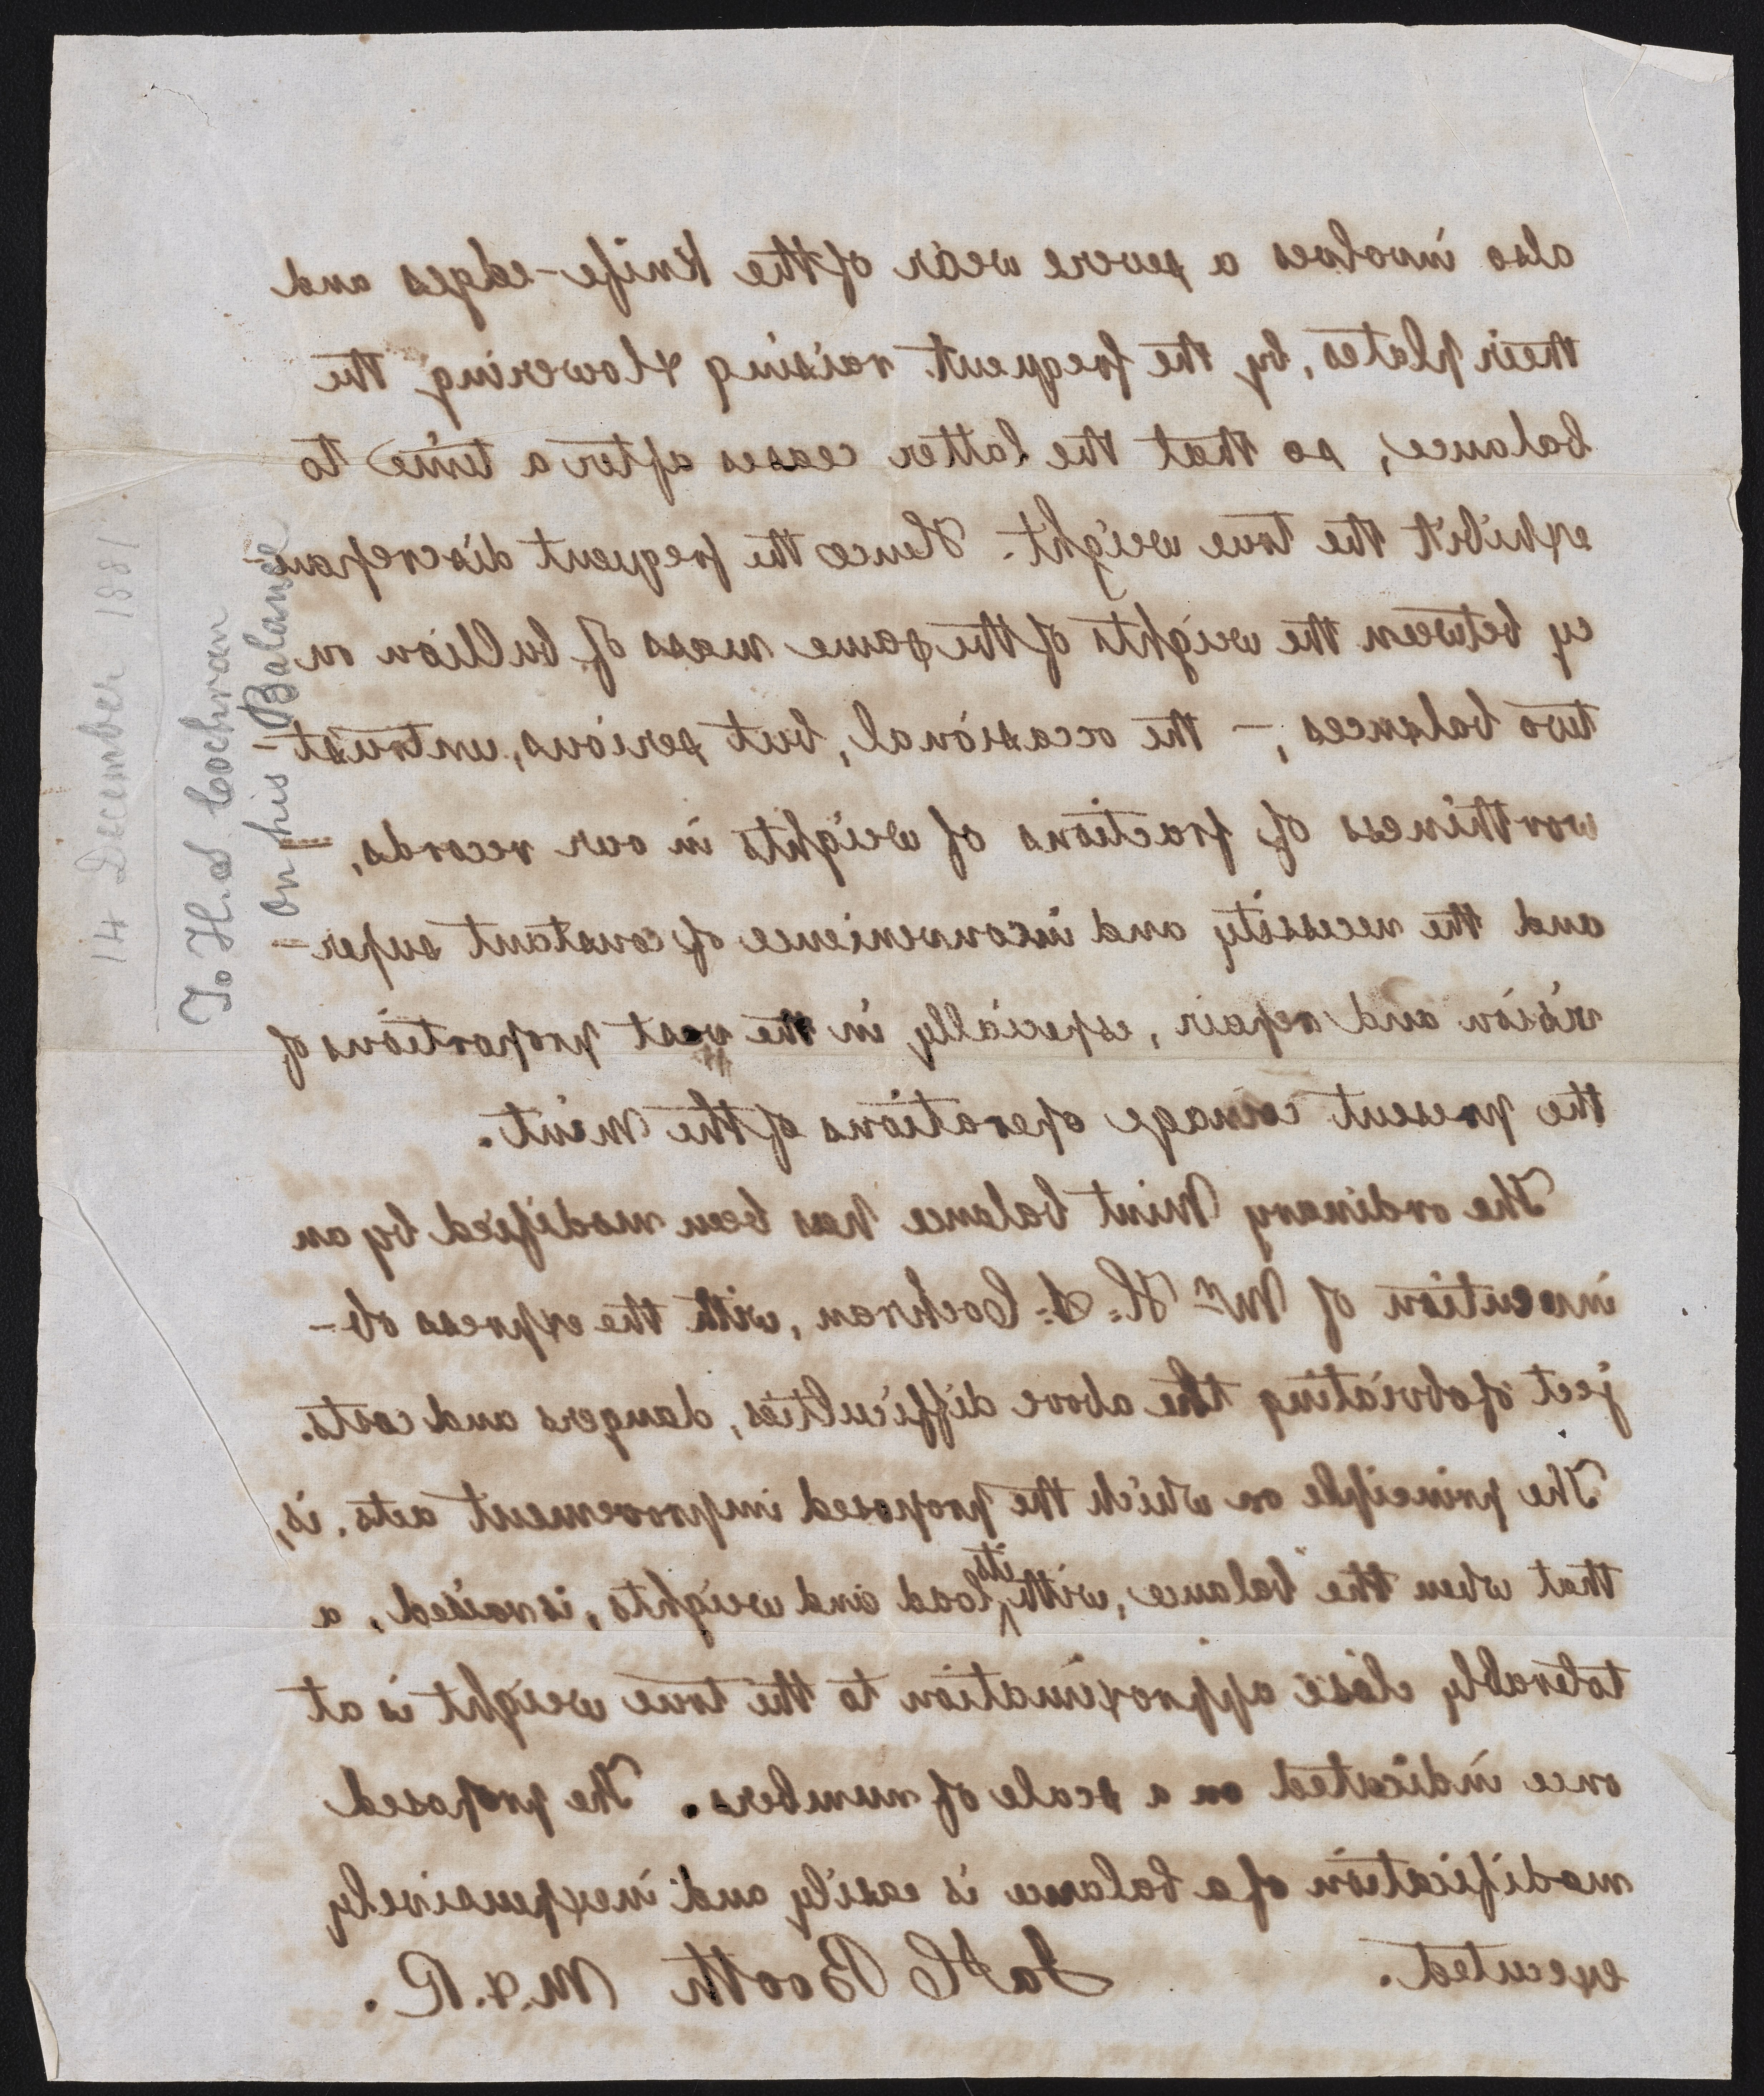 also involves a severe wear of the knife-edges and
their plates, by the frequent raising & lowering the
balance, so that the latter ceases after a time to
exhibit the true weight. Hence the frequent discrepan-
cy between the weights of the same mass of bullion on
two balances; – the occasional, but serious, untrust-
worthiness of fractions of weights in our records, –
and the necessity and inconvenience of constant super-
vision and repair, especially in the vast proportions of
the present coinage operations of the Mint.
The ordinary Mint balance has been modified by an
invention of Mr H. S. Cochran, with the express ob-
ject of obviating the above difficulties, dangers and costs.
The principle on which the proposed improvement acts, is,
that when the balance, with its load and weights, is raised, a
tolerably close approximation to the true weight is at
once indicated on a scale of numbers. The proposed
modification of a balance is easily and inexpensively
executed. Ja C Booth M. & R.
14 December 1881
To H. S Cochran
on his Balance